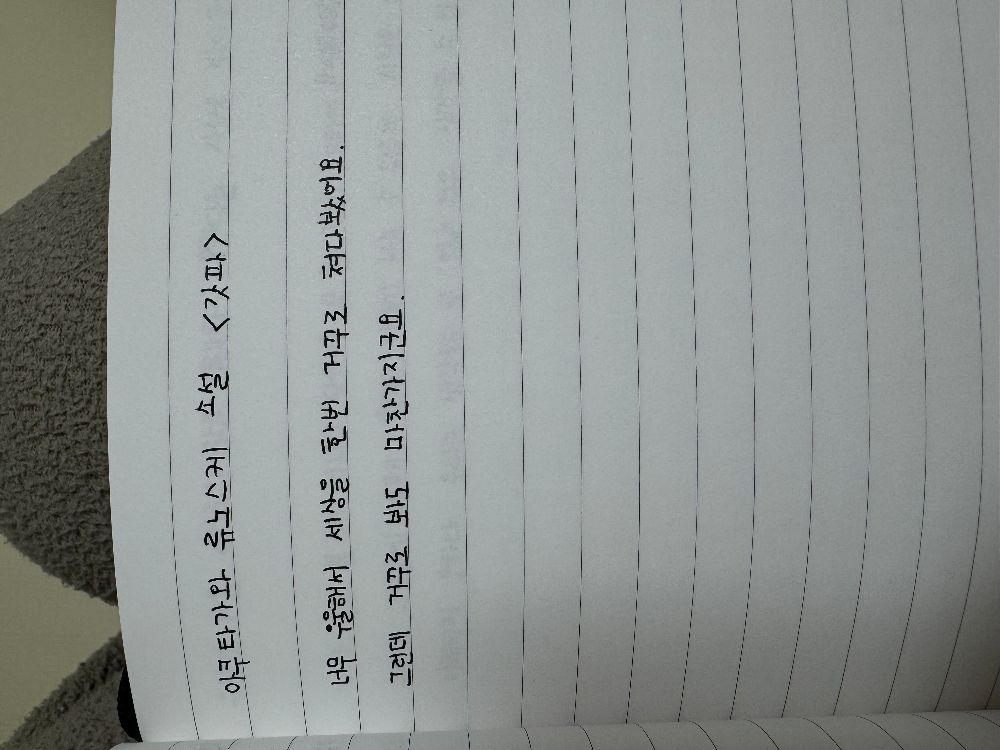 아쿠타가와 류노스케 소설 <갓파>
너무 우울해서 세상을 한번 거꾸로 쳐다봤어요.
그런데 거꾸로 봐도 마찬가지군요.